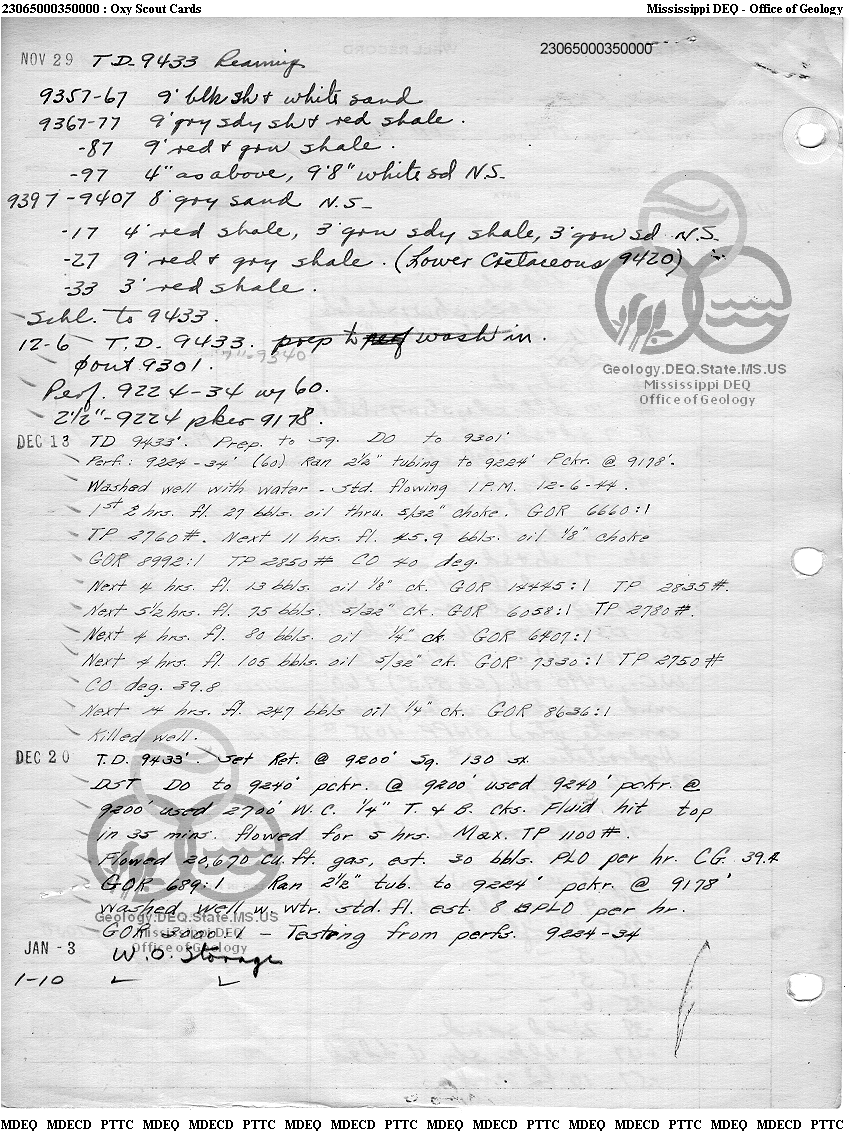 23065000350000 : Oxy Scout Cards
Mississippi DEQ - Office of Geology
23065000350000
NOV 29 T.D. 9433 Reaming
9357-67 9' blk sh & white sand
9367-77 9' gry sdy sh & red shale.
-87 9' red & grn shale.
-97 4" as above, 9'8" white sd N.S.
9397-9407 8' gry sand N.S.
-17 4' red shale, 3' grn sdy shale, 3' grn sd N.S.
-27 9' red & gry shale. (Lower Cretaceous 9420)
-33 3' red shale.
Schl. to 9433.
12-6 T.D. 9433. prep to perf wash in.
7"-9340
φout 9301.
Perf. 9224-34 w/ 60.
2½"-9224 pker 9178.
Geology.DEQ.State.MS.US
Mississippi DEQ
Office of Geology
DEC 13 TD 9433'. Prep. to sq. DO to 9301'
Perf.: 9224-34' (60) Ran 2½" tubing to 9224' Pckr. @ 9178'.
Washed well with water - Std. flowing 1 P.M. 12-6-44.
1st 2 hrs. fl. 27 bbls. oil thru. 5/32" choke. GOR 6660:1
TP 2760#. Next 11 hrs. fl. 45.9 bbls. oil 1/8" choke
GOR 8992:1 TP 2850# CO 40 deg.
Next 4 hrs. fl. 13 bbls. oil 1/8" ck. GOR 14445:1 TP 2835#.
Next 5½ hrs. fl. 75 bbls. 5/32" ck. GOR 6058:1 TP 2780#.
Next 4 hrs. fl. 80 bbls. oil 1/4" ck. GOR 6407:1
Next 4 hrs. fl. 105 bbls. oil 5/32" ck. GOR 7330:1 TP 2750#
CO deg. 39.8
Next 14 hrs. fl. 247 bbls oil 1/4" ck. GOR 8636:1
Killed well.
DEC 20 T.D. 9433'. Set Ret. @ 9200' Sq. 130 sx.
DST DO to 9240' pckr. @ 9200' used 9240' pckr. @
9200' used 2700' W.C. 1/4" T. & B. Cks. Fluid hit top
in 35 mins. flowed for 5 hrs. Max. TP 1100#.
Flowed 20,670 cu. ft. gas, est. 30 bbls. PLO per hr. CG. 39.4
GOR 689:1 Ran 2½" tub. to 9224' pckr. @ 9178'
Washed well w. wtr. std. fl. est. 8 BPLO per hr.
Geology.DEQ.State.MS.US
GOR 5000:1 - Testing from perfs. 9224-34
Mississippi DEQ
Office of Geology
JAN -3 W.O. Storage
1-10
MDEQ MDECD PTTC MDEQ MDECD PTTC MDEQ MDECD PTTC MDEQ MDECD PTTC MDEQ MDECD PTTC MDEQ MDECD PTTC